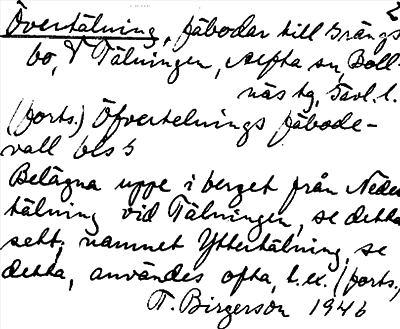 2
Övertälning, fäbodar till Grängs-
bo, V Tälningen, Alfta sn, Boll-
näs tg, Gävl. l.
(forts.) Öfvertelnings fäbode-
vall bls 3
Belägna uppe i berget från Neder-
tälning vid Tälningen, se detta
sekt; namnet Yttertälning, se
detta, användes ofta, t.ex. (forts.)
T. Birgerson 1946